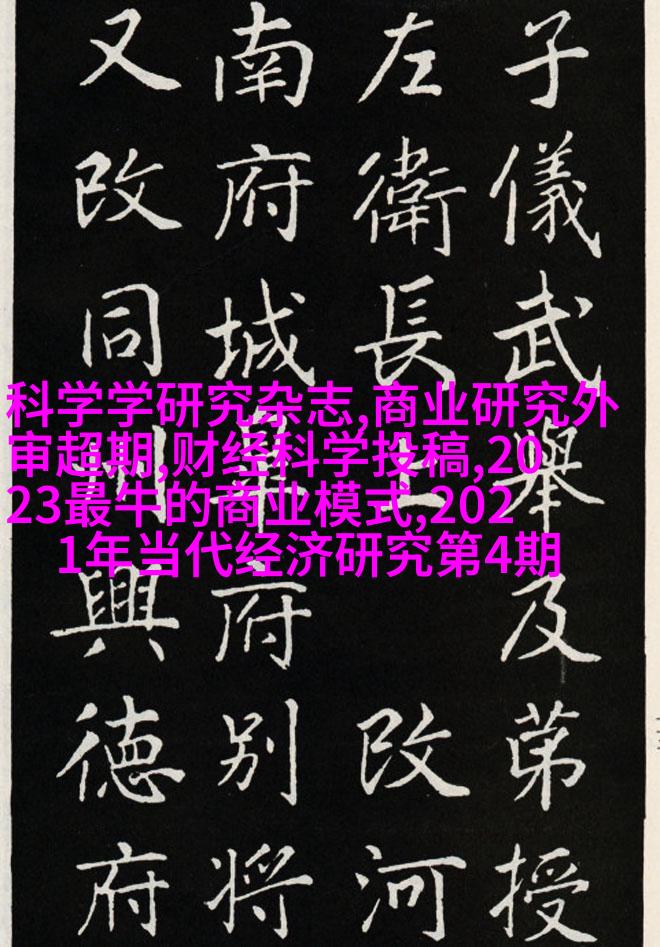 子儀武舉及苐授
左衛長上 改河
南府城皐府别将
又改同州興徳府
科学学研究杂志,商业研究外
审超期,财经科学投稿,20
23最牛的商业模式,202
1年当代经济研究第4期